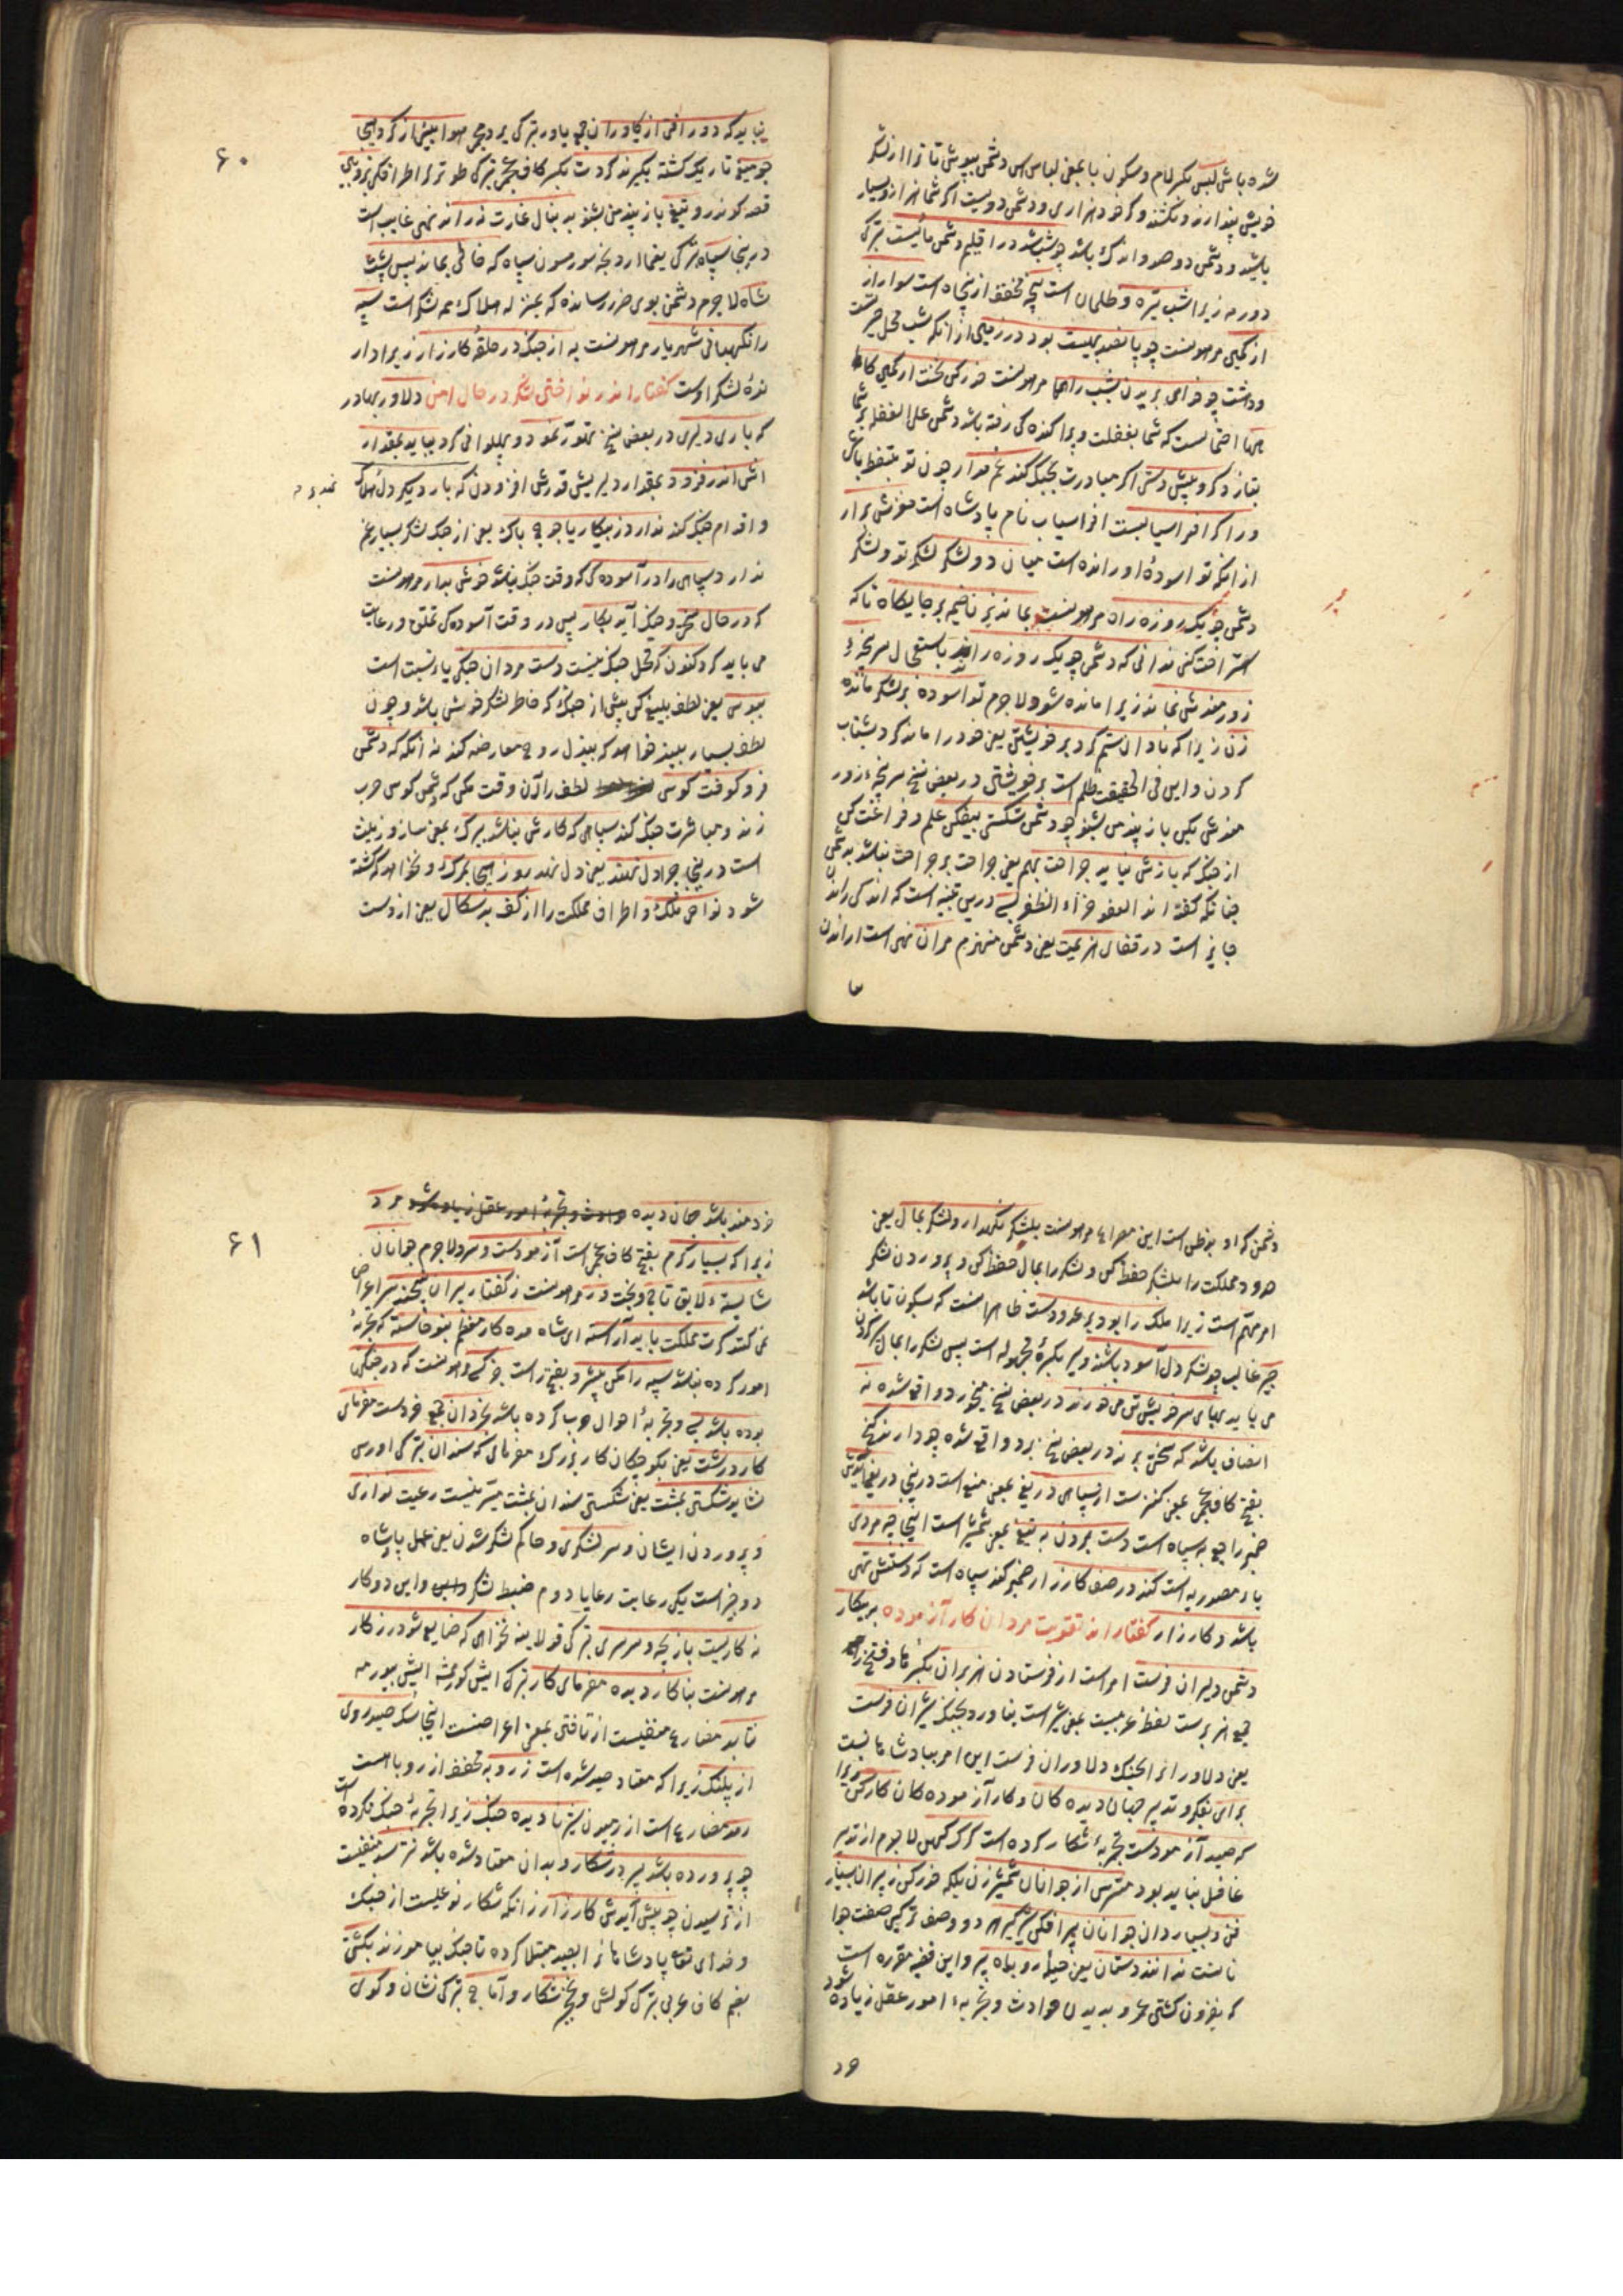 شده باش لبس بکسر لام و سکون با بمعنی لباس اس دشمن بپوش تا ترا از لشکر
خویش پندارند و نکشند وگر خود هزاری و دشمن دویست اگر شما هزار اند و بسیار
باشید و دشمن دو صد و اندک باشد چو شب شد در اقلیم دشمن مأیست بترکی
دورمه زیرا شب تیره و ظلمان است پنجه مخفف از پنجاه است سوار از
از کمین مرهونست چو پانصد بهیبت بود در زمین از آنکه شب محل حیرت
و دشت چو خواهی بریدن بشب راهها مرهونست حذر کن نخست از کمین کاهها
احتمالست که شما بغفلت و پراکنده کی رفته باشد دشمن علی الغفله بر شما
بتازد گر و پیش دستی اگر مبادرت بجنگ کند غم مدار چون تو متیقظ باش
ور اگر افراسیابست افراسیاب نام پادشاه است مغزش برآر
از آنکه تو اسوده او رانده است میان دو لشکر لشکر تو و لشکر
دشمن چو یک روزه راه مرهونست بماند بزن خیمه بر جایگاه تا که
استراحت کنی ندانی که دشمن چو یک روزه راند باستعجال سر پنجهٔ
زورمندش نماند زیرا مانده شود لاجرم تو آسوده بر لشکر مانده
زن زیرا که نادان ستم کرد بر خویشتن یعنی خود را مانده کرد بشتاب
کردن و این فی الحقیقت ظلم است بر خویشتن در بعض نسخ سر پنجهٔ زور
مندش یکی باز پند من بشنو چو دشمن شکستی بیفکن علم و فراغت کن
از جنگ که بازش نیاید جراحت بهم یعنی جراحت بر جراحت نباشد بدشمن
چنانکه گفته اند العفو جزاء الظفر بسی درین تنبیه است که اندکی راندن
جایز است در قفای هزیمت یعنی دشمن منهزم مران نهی است از راندن
نباید که دور افتی از یاوران جمع یاور بترکی یردمجی هوا بینی از گرد هیجا
چو میغ تاریک گشته بگیرند گردت بکسر کاف عجمی بترکی طولانی اطراف بزوبین
قصد کونند و تیغ باز پند من بشنو بدنبال غارت نراند نهی غایب است
در اینجا سپاه بترکی یغما اردنجه سورمسون سپاه که خالی بماند پس پشت
شاه لاجرم دشمن بوی ضرر رساند که بمنزله هلاک همه لشکر است سپه
را نگهبانی شهریار مرهونست به از جنگ در حلقهٔ کارزار زیرا دار
ندهٔ لشکر اوست گفتار اندر نواختن لشکر در حال امن دلاور بهادر
که باری دلیری در بعض نسخ تهور نمود و پهلوانی کرد بباید بمقدار
اش اندر فزود بمقدار دلیریش قدرش افزودن که بار دیگر دل نهد بر هلاک
و اقدام جنگ کند ندارد ز پیکار یاجوج باک یعنی از جنگ لشکر بسیار غم
ندارد سپاهی را در آسوده کی که وقت جنگ نباشد خوش بدار مرهونست
که در حال سختی و جنگ آید بکار پس در وقت آسوده کی تملق و رعایت
می باید کرد کنون که محل جنگ نیست دست مردان جنگی یاء نسبت است
ببوس یعنی لطف بلیغ کن پیش از جنگ که خاطر لشکر خوش باشد و چون
لطف بسیار ببیند خواهد که ببذل روح معارضه کند نه آنکه که دشمن
فرو کوفت کوس لطف را آن وقت مکن که دشمن کوس حرب
زند و مباشرت جنگ کند سپاهی که کارش نباشد ببرگ بمعنی ساز و زینت
است در اینجا چرا دل نهد یعنی دل ننهد روز هیجا بمرگ و نخواهد که کشته
شود نواحی ملک و اطراف مملکت را از کف بدسگال یعنی از دست
۶۰
دشمن که او بدظن است این مصراع مرهونست بلشکر نگهدار و لشکر بمال یعنی
حدود مملکت را بلشکر حفظ کن و لشکر را بمال حفظ کن و پروردن لشکر
امر مهم است زیرا ملک را بود بر عدو دست ظاهرا نست که بسکون تا باشد
چیره غالب چو لشکر دل آسوده باشند و سیر بکسرهٔ مجهوله است پس لشکر را بمال سیر کردن
می باید بهای سر خویشتن می خورند در بعض نسخ میخورد واقع شده نه
انصاف باشد که سختی برند در بعض نسخ برد واقع شده چو دارند گنج
بفتح کاف عجمی بمعنی کنز است از سپاهی دریغ بمعنی منع است در اینجا دریغ آیدش
ضمیر راجع به سپاه است دست بردن به تیغ بمعنی شمشیر است اینجا چه مردی
یاء مصدریه است کند در صف کارزار ضمیر کند سپاه است که دستش تهی
باشد و کارزار گفتار اندر تقویت مردان کار آزموده بپیکار
دشمن دلیران فرست امر است از فرستادن هزبران بکسر ها و فتح زا
جمع هزبرست لفظ عربیست بمعنی شیر است بناورد بجنگ شیران فرست
یعنی دلاور انرا بجنگ دلاوران فرست این امر بپادشاهانست
برای تفکر و تدبیر جهان دیده کان و کار آزموده کان کار کن زیرا
که صید آزمودست تجربهٔ شکار کرده است گرگ کهن لاجرم از تدبیر
غافل نباید بود مترس از جوانان شمشیر زن بلکه حذر کن ز پیران بسیار
فن و بسیار دان جوانان پیل افکن شیرگیر هر دو وصف ترکیبی صفت جوا
نانست ندانند دستان یعنی حیلهٔ روباه پیر و این قضیه مقرره است
که بفزون گشتن عمر و بدیدن حوادث و تجربهٔ امور عقل زیاده شود
خرد
خردمند باشد جهان دیده مرد
زیرا که بسیار گرم بفتح کاف عجمی است آزمودست و سرد لاجرم جوانان
شایستهٔ لایق تاج و بخت ور مرهونست ز گفتار پیران نپیچند سر اعراض
نمی کنند گرت مملکت باید آراسته ای شاه مده کار معظم بنوخاسته که تجربهٔ
امور کرده نباشد سپه را مکن پیشرو بفتح راست جز کسی مرهونست که در جنگها
بوده باشد بسی و تجربهٔ احوال حرب کرده باشد بخردان جمع خردست مفرمای
کار درشت یعنی بکوچکان کار بزرگ مفرمای که سندان بترکی اورس
نشاید شکستن بمشت یعنی شکستن سندان بمشت میسر نیست رعیت نوازی
و پروردن ایشان و سر لشکری و حاکم لشکر شدن یعنی عمل پادشاه
دو چیز است یکی رعایت رعایا دوم ضبط لشکر و این دو کار
نه کاریست بازیچه و سرسری بترکی قولاینه نخواهی که ضایع شود روزکار
مرهونست بنا کار دیده مفرمای کار بترکی ایش کورمامشه ایش بیورمه
نتابد مضارع منفیست از تافتن بمعنی اعراضست اینجا سگ صید روی
از پلنگ زیرا که معتاد صید شده است ز روبه مخفف از روباه است
رمد مضارع است از رمیدن شیر نادیده جنگ زیرا تجربهٔ جنگ نکرده است
چو پرورده باشد پسر در شکار و بدان معتاد شده باشد نترسد منفیست
از ترسیدن چو پیش آیدش کارزار زانکه شکار نوعیست از جنگ
و خدای تعالی پادشاهانرا بصید مبتلا کرده تا جنگ بیاموزند بکشتی
بضم کاف عربی بترکی کولش و نخچیر شکار و آماج بترکی نشان و گوی
۶۱